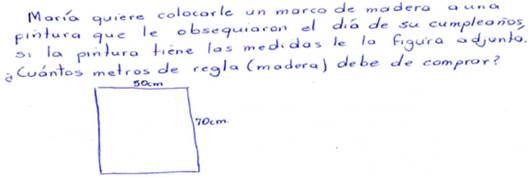 María quiere colocarle un marco de madera a una
pintura que le obsequiaron el día de su cumpleaños,
si la pintura tiene las medidas le la figura adjunta.
¿Cuántos metros de regla (madera) debe de comprar?
50cm
70cm